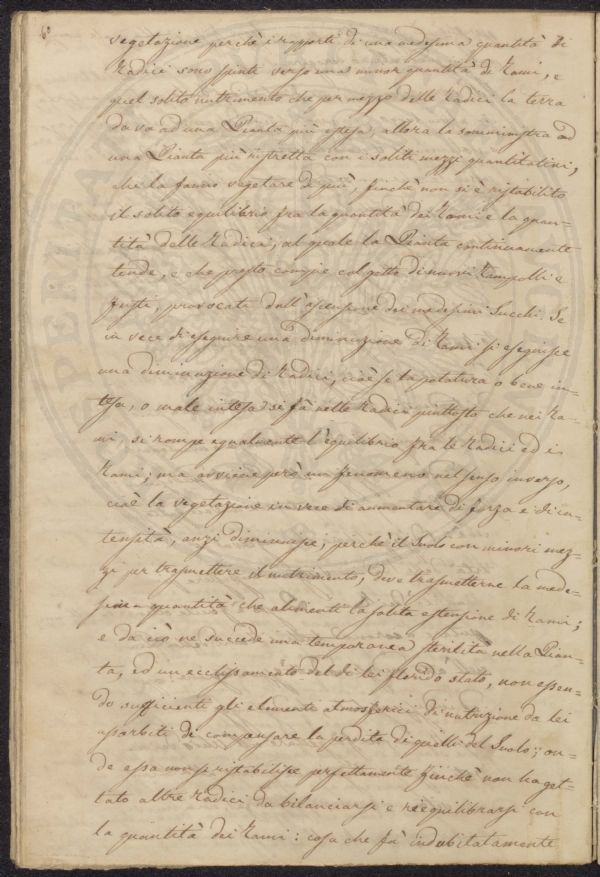 60
vegetazione perchè i rapporti di una medesima quantità di
Radici sono spinti verso una minor quantità di Rami, e
quel solito nutrimento che per mezzo delle Radici la terra
dava ad una Pianta più estesa, allora lo somministra ad
una Pianta più ristretta con i soliti mezzi quantitativi,
che la fanno vegetare di più, finchè non si è ristabilito
il solito equilibrio fra la quantità dei Rami e la quan-
tità delle Radici, al quale la Pianta continuamente
tende, e che presto compie col getto di nuovi Rampolli e
fusti, provocati dall'ascensione dei medesimi Succhi. Se
in vece di eseguire una diminuzione di Rami si eseguisse
una diminuzione di Radici, cioè se la potatura o bene in-
tesa, o male intesa si fà nelle Radici piuttosto che nei Ra-
mi, si rompe egualmente l'equilibrio fra le Radici ed i
Rami; ma avviene però un fenomeno nel senso inverso,
cioè la vegetazione in vece di aumentare di forza e di in-
tensità, anzi diminuisce, perchè il Suolo con minori mez-
zi per trasmettere il nutrimento, deve trasmetterne la mede-
sima quantità che alimenti la solita estensione di Rami;
e da ciò ne succede una temporanea sterilità nella Pian-
ta, ed un ecclissamento del di lei florido stato, non essen-
do sufficienti gli elementi atmosferici di nutrizione da lei
assorbiti di compensare la perdita di quelli del Suolo; on-
de essa non si ristabilisce perfettamente finchè non ha get-
tato altre Radici da bilanciarsi e riequilibrarsi con
la quantità dei Rami: cosa che fà indubitatamente